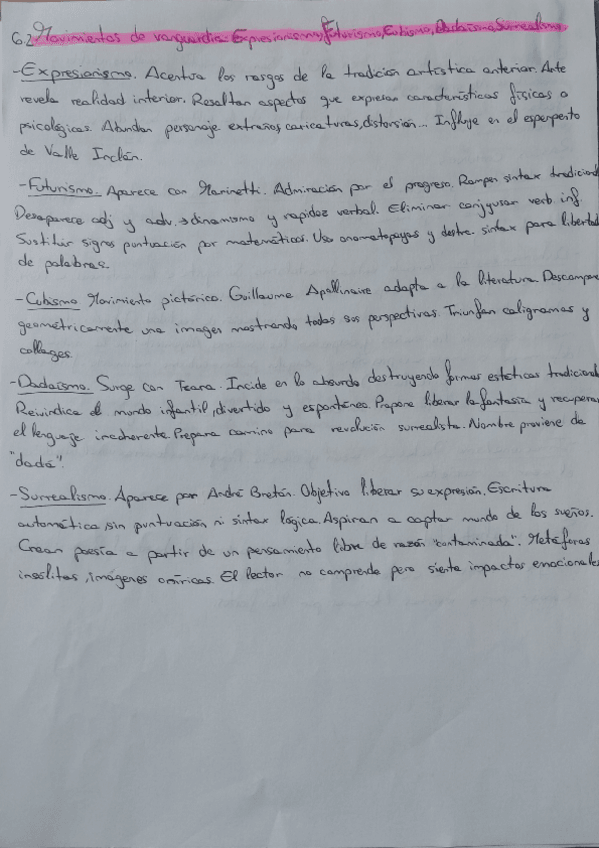 6.2 Movimientos de vanguardia: Expresionismo, Futurismo, Cubismo, Dadaísmo, Surrealismo
-Expresionismo. Acentúa los rasgos de la tradición artística anterior. Ante
revela realidad interior. Resaltan aspectos que expresan características físicas o
psicológicas. Abundan personaje extraños, caricaturas, distorsión... Influye en el esperpento
de Valle Inclán.
-Futurismo. Aparece con Marinetti. Admiración por el progreso. Rompen sintax tradicional
Desaparece adj y adv. → dinamismo y rapidez verbal. Eliminar conjugan verb inf.
Sustituir signos puntuación por matemáticos. Uso onomatopeyas y destre. sintax para libertad
de palabras.
-Cubismo Movimiento pictórico. Guillaume Apollinaire adapta a la literatura. Descompone
geométricamente una imagen mostrando todas sus perspectivas. Triunfan caligramas y
collages.
-Dadaísmo. Surge con Tzara. Incide en lo absurdo destruyendo formas estéticas tradicional
Reivindica el mundo infantil, divertido y espontáneo. Propone liberar la fantasía y recuperar
el lenguaje incoherente. Prepara camino para revolución surrealista. Nombre proviene de
"dadá".
-Surrealismo. Aparece por André Bretón. Objetivo liberar su expresión. Escritura
automática, sin puntuación ni sintax lógica. Aspiran a captar mundo de los sueños.
Crean poesía a partir de un pensamiento libre de razón "contaminada". Metáforas
insólitas, imágenes oníricas. El lector no comprende pero siente impactos emocionales